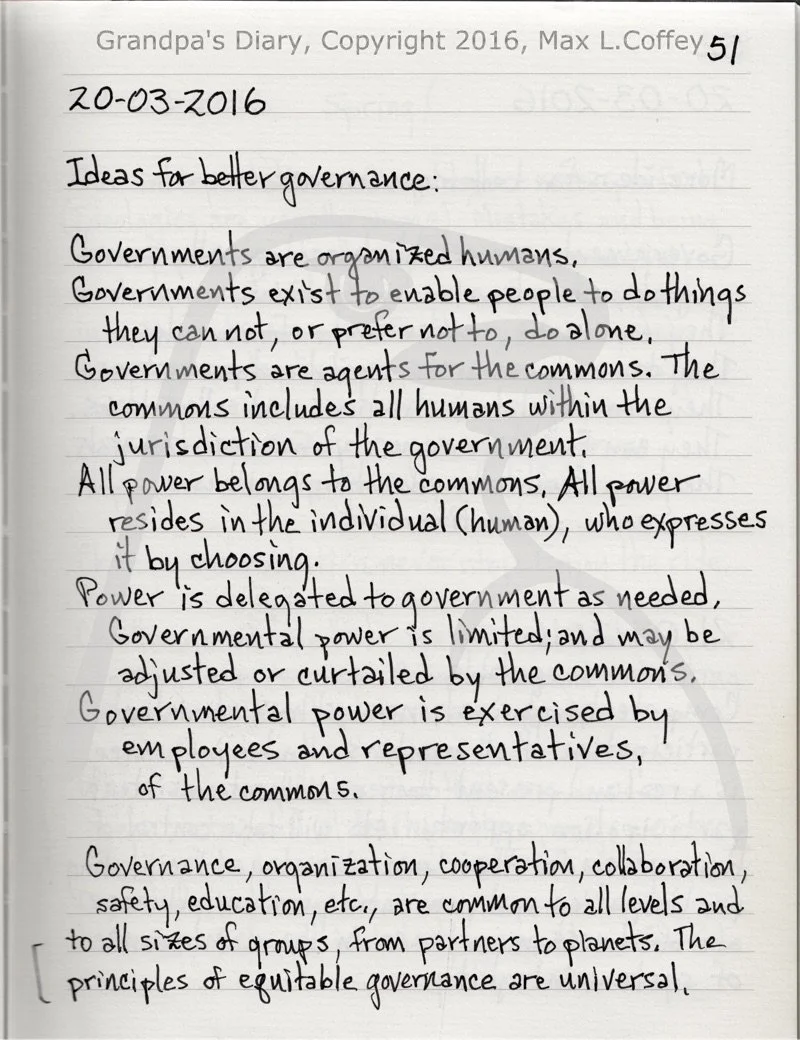 Grandpa's Diary, Copyright 2016, Max L.Coffey 51
20-03-2016
Ideas for better governance:
Governments are organized humans.
Governments exist to enable people to do things
they can not, or prefer not to, do alone.
Governments are agents for the commons. The
commons includes all humans within the
jurisdiction of the government.
All power belongs to the commons. All power
resides in the individual (human), who expresses
it by choosing.
Power is delegated to government as needed.
Governmental power is limited; and may be
adjusted or curtailed by the commons.
Governmental power is exercised by
employees and representatives,
of the commons.
Governance, organization, cooperation, collaboration,
safety, education, etc., are common to all levels and
to all sizes of groups, from partners to planets. The
principles of equitable governance are universal.